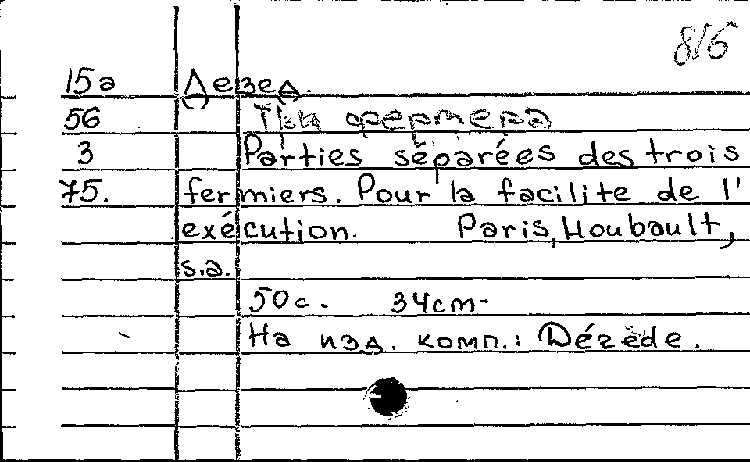 816
15а Дезед.
56 Три фермера
3 Parties séparées des trois
75. fermiers. Pour la facilite de l'
exécution. Paris, Houbault,
s.a.
50 c. 34cm.
На изд. комп.: Dézède.